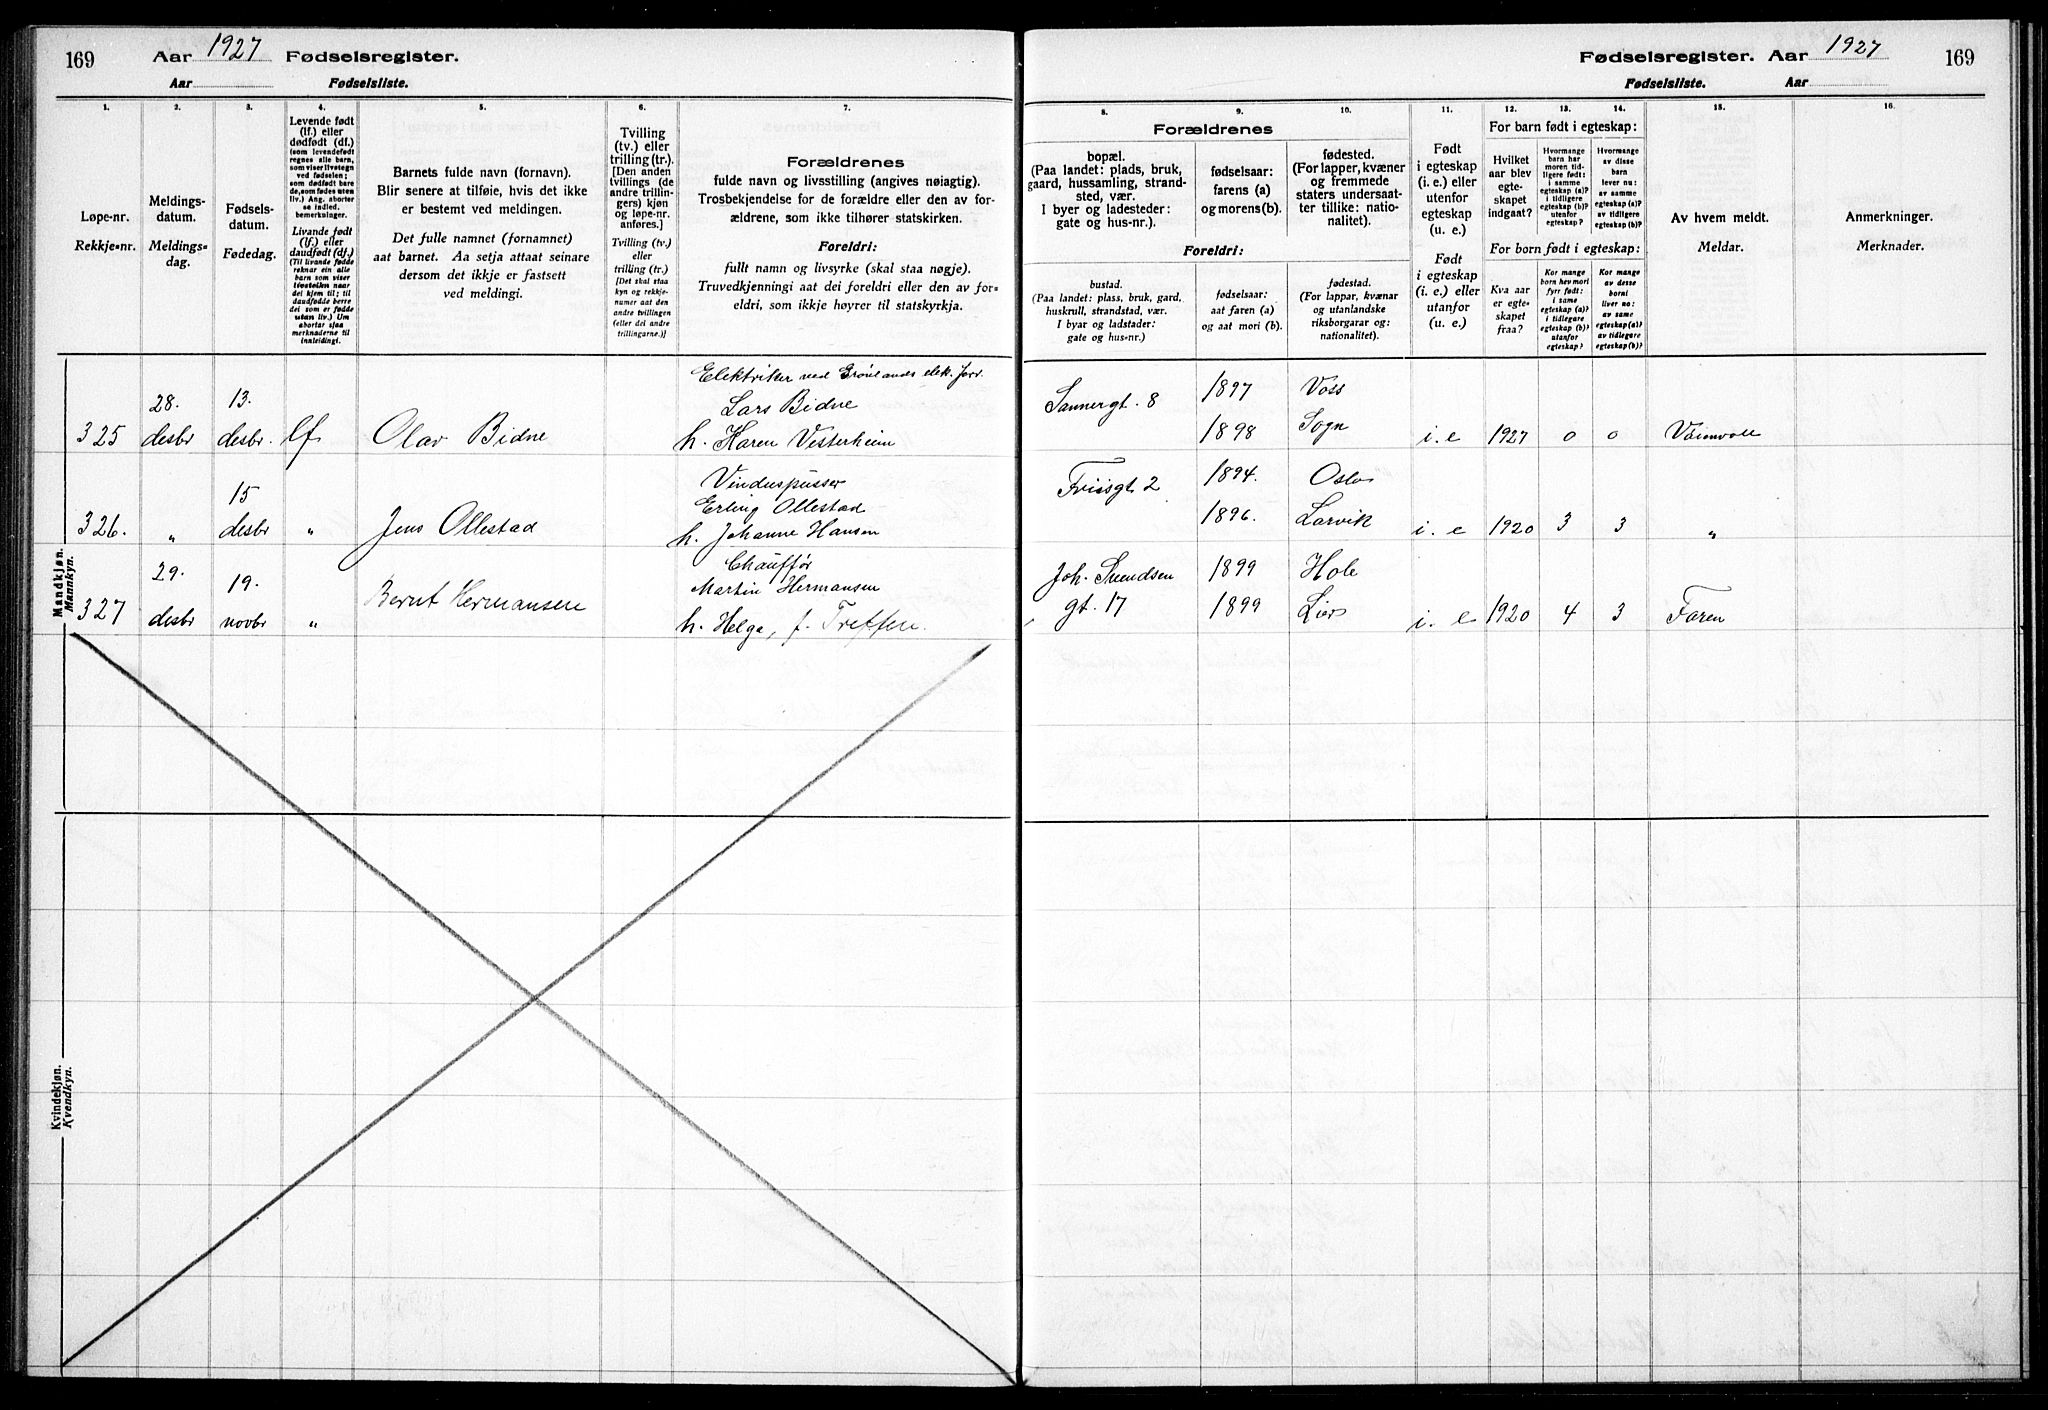 169
Aar 1927 Fødselsregister.
Aar Fødselsliste.
1. 2. 3. 4. 5. 6. 7.
Løpe-nr.
Rekkje-nr.
Meldings-
datum.
Meldings-
dag.
Fødsels-
datum.
Fødedag.
Levende født
(lf.) eller
dødfødt (df.)
(som levendefødt
regnes alle barn,
som viser livstegn
ved fødselen;
som dødfødt bare
de, som fødes uten
liv.) Ang. aborter
se indled.
bemerkninger.
Livande født
(lf.) eller
daudfødt (df.)
(Til livande fødde
reknar ein alle
barn som viser
livsteikn naar
dei kjem til; til
daudfødde berre
dei som er fødde
utan liv.) Um
abortar sjaa
merknaderne til
innleidingi.
Barnets fulde navn (fornavn).
Blir senere at tilføie, hvis det ikke
er bestemt ved meldingen.
Det fulle namnet (fornamnet)
aat barnet. Aa setja attaat seinare
dersom det ikkje er fastsett
ved meldingi.
Tvilling
(tv.) eller
trilling (tr.).
[Den anden
tvillings (de
andre trillin-
gers) kjøn
og løpe-nr.
anføres.]
Tvilling (tv.)
eller
trilling (tr.)
[Det skal staa
kyn og rekkje-
numer aat den
andre tvillingen
(eller dei andre
trillingarne.)]
Forældrenes
fulde navn og livsstilling (angives nøiagtig).
Trosbekjendelse for de forældre eller den av for-
ældrene, som ikke tilhører statskirken.
Foreldri:
fullt namn og livsyrke (skal staa nøgje).
Truvedkjenningi aat dei foreldri eller den av for-
eldri, som ikkje høyrer til statskyrkja.
Mandkjøn.
Mannkyn.
325
28.
desbr
13.
desbr.
lf
Olav Bidne
Elektriker ved Grønlands elek. forr.
Lars Bidne
h. Karen Vesterheim
326.
"
15
desbr
"
Jens Ollestad
Vinduspusser
Erling Ollestad
h. Johanne Hansen
327
29.
desbr
19.
novbr
"
Bernt Hermansen
Chauffør
Martin Hermansen
h. Helga, f. Treffen.
Kvindekjøn.
Kvendkyn.
Fødselsregister. Aar 1927
169
Fødselsliste. Aar
8. 9. 10. 11. 12. 13. 14. 15. 16.
Forældrenes
bopæl.
(Paa landet: plads, bruk,
gaard, hussamling, strand-
sted, vær.
I byer og ladesteder:
gate og hus-nr.).
fødselsaar:
farens (a)
og morens (b).
fødested.
(For lapper, kvæner
og fremmede
staters undersaat-
ter tillike: natio-
nalitet).
Foreldri:
bustad.
(Paa landet: plass, bruk, gard,
huskrull, strandstad, vær.
I byar og ladstader:
gate og hus-nr.)
fødselsaar:
aat faren (a)
og aat mori (b).
fødestad.
(For lappar, kvænar
og utanlandske
riksborgarar og:
nationalitet).
Født
i egteskap
(i. e.) eller
utenfor
egteskap
(u. e.)
Født
i egteskap
(i. e.) eller
utanfor
(u. e.)
For barn født i egteskap:
Hvilket
aar blev
egte-
skapet
indgaat?
Hvormange
barn har
moren tid-
ligere født:
i samme
egteskap (a)?
i tidligere
egteskap (b)?
utenfor
egteskap?
Hvormange
av disse
barn
lever nu:
av samme
egteskap (a)?
av tidligere
egteskap (b)?
For born født i egteskap:
Kva aar
er egte-
skapet
fraa?
Kor mange
born hev mori
fyrr født:
i same
egteskap (a)?
i tidlegare
egteskap (b)?
utanfor
egteskap?
Kor mange
av desse
borni
liver no:
av same
egteskap (a)?
av tidlegare
egteskap (b)?
Av hvem meldt.
Meldar.
Anmerkninger.
Merknader.
Sannergt. 8
1897
1898
Voss
Sogn
i. e
1927
0
0
Friisgt 2
1894.
1896.
Oslo
Larvik
i. e
1920
3
3
"
Joh. Svendsen
gt. 17
1899
1899
Hole
Lier
i. e
1920
4
3
Faren